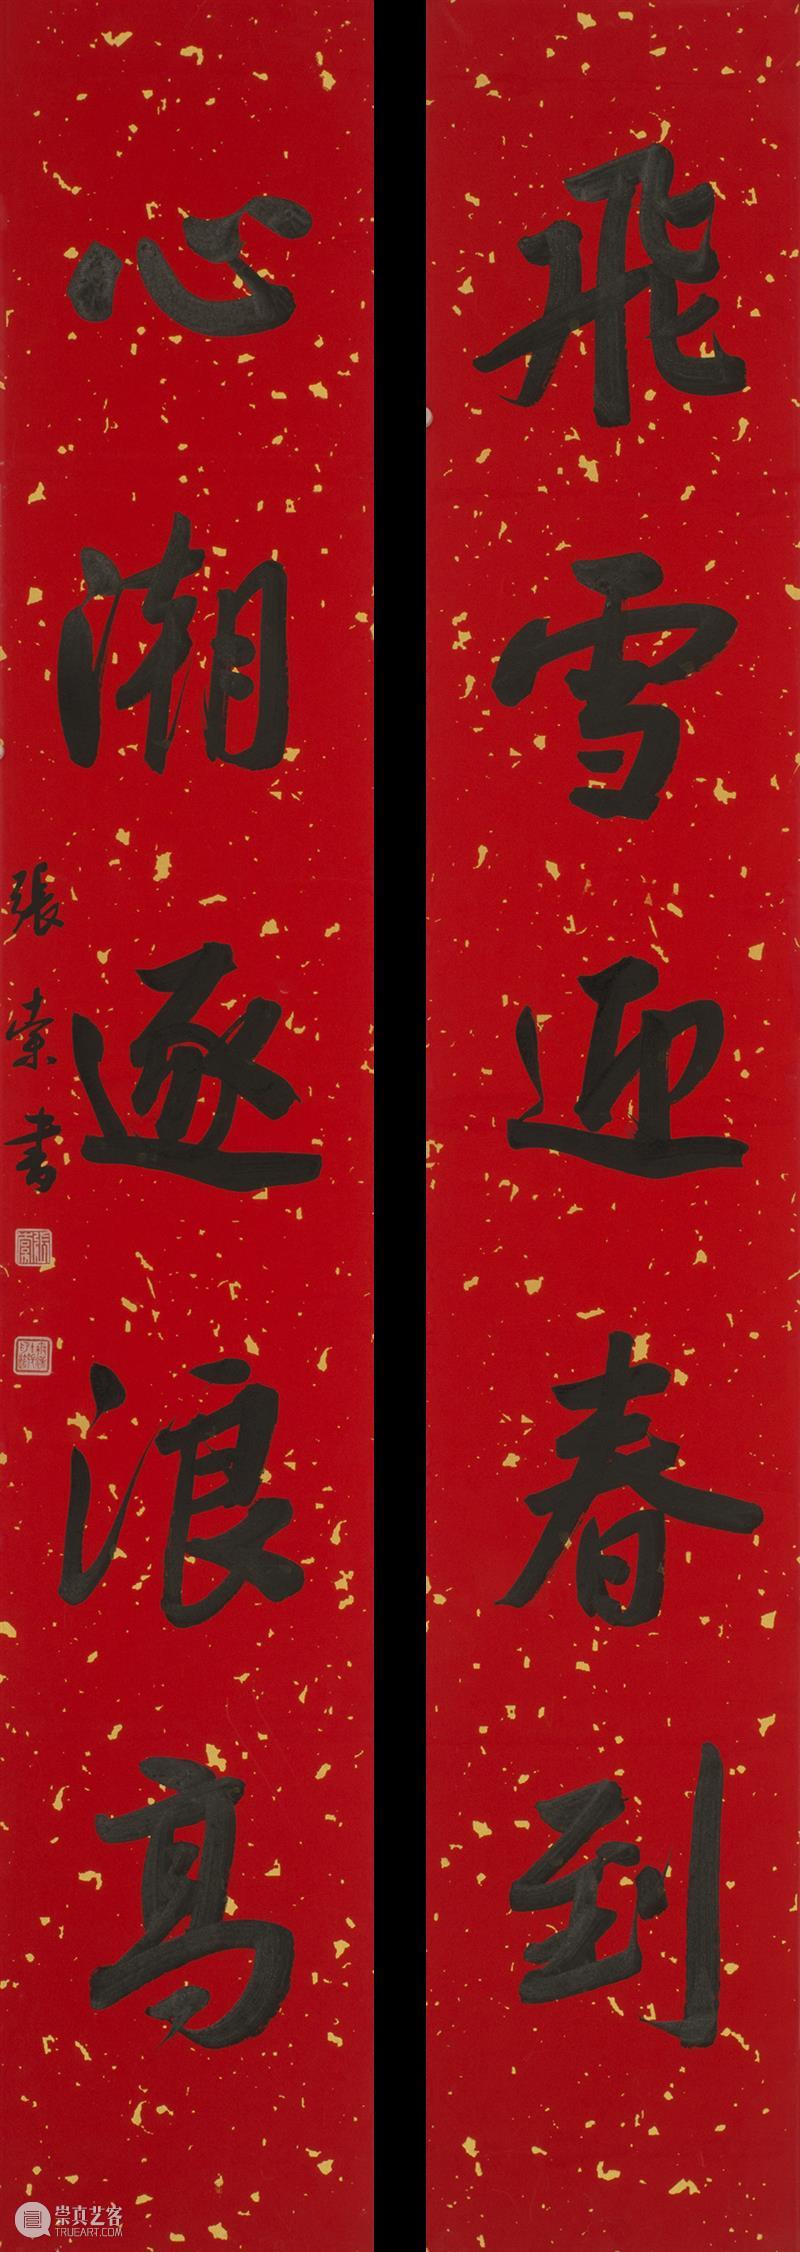 飛雪迎春到
心潮逐浪高
張索書
張索
崇真艺客
TRUEART.COM